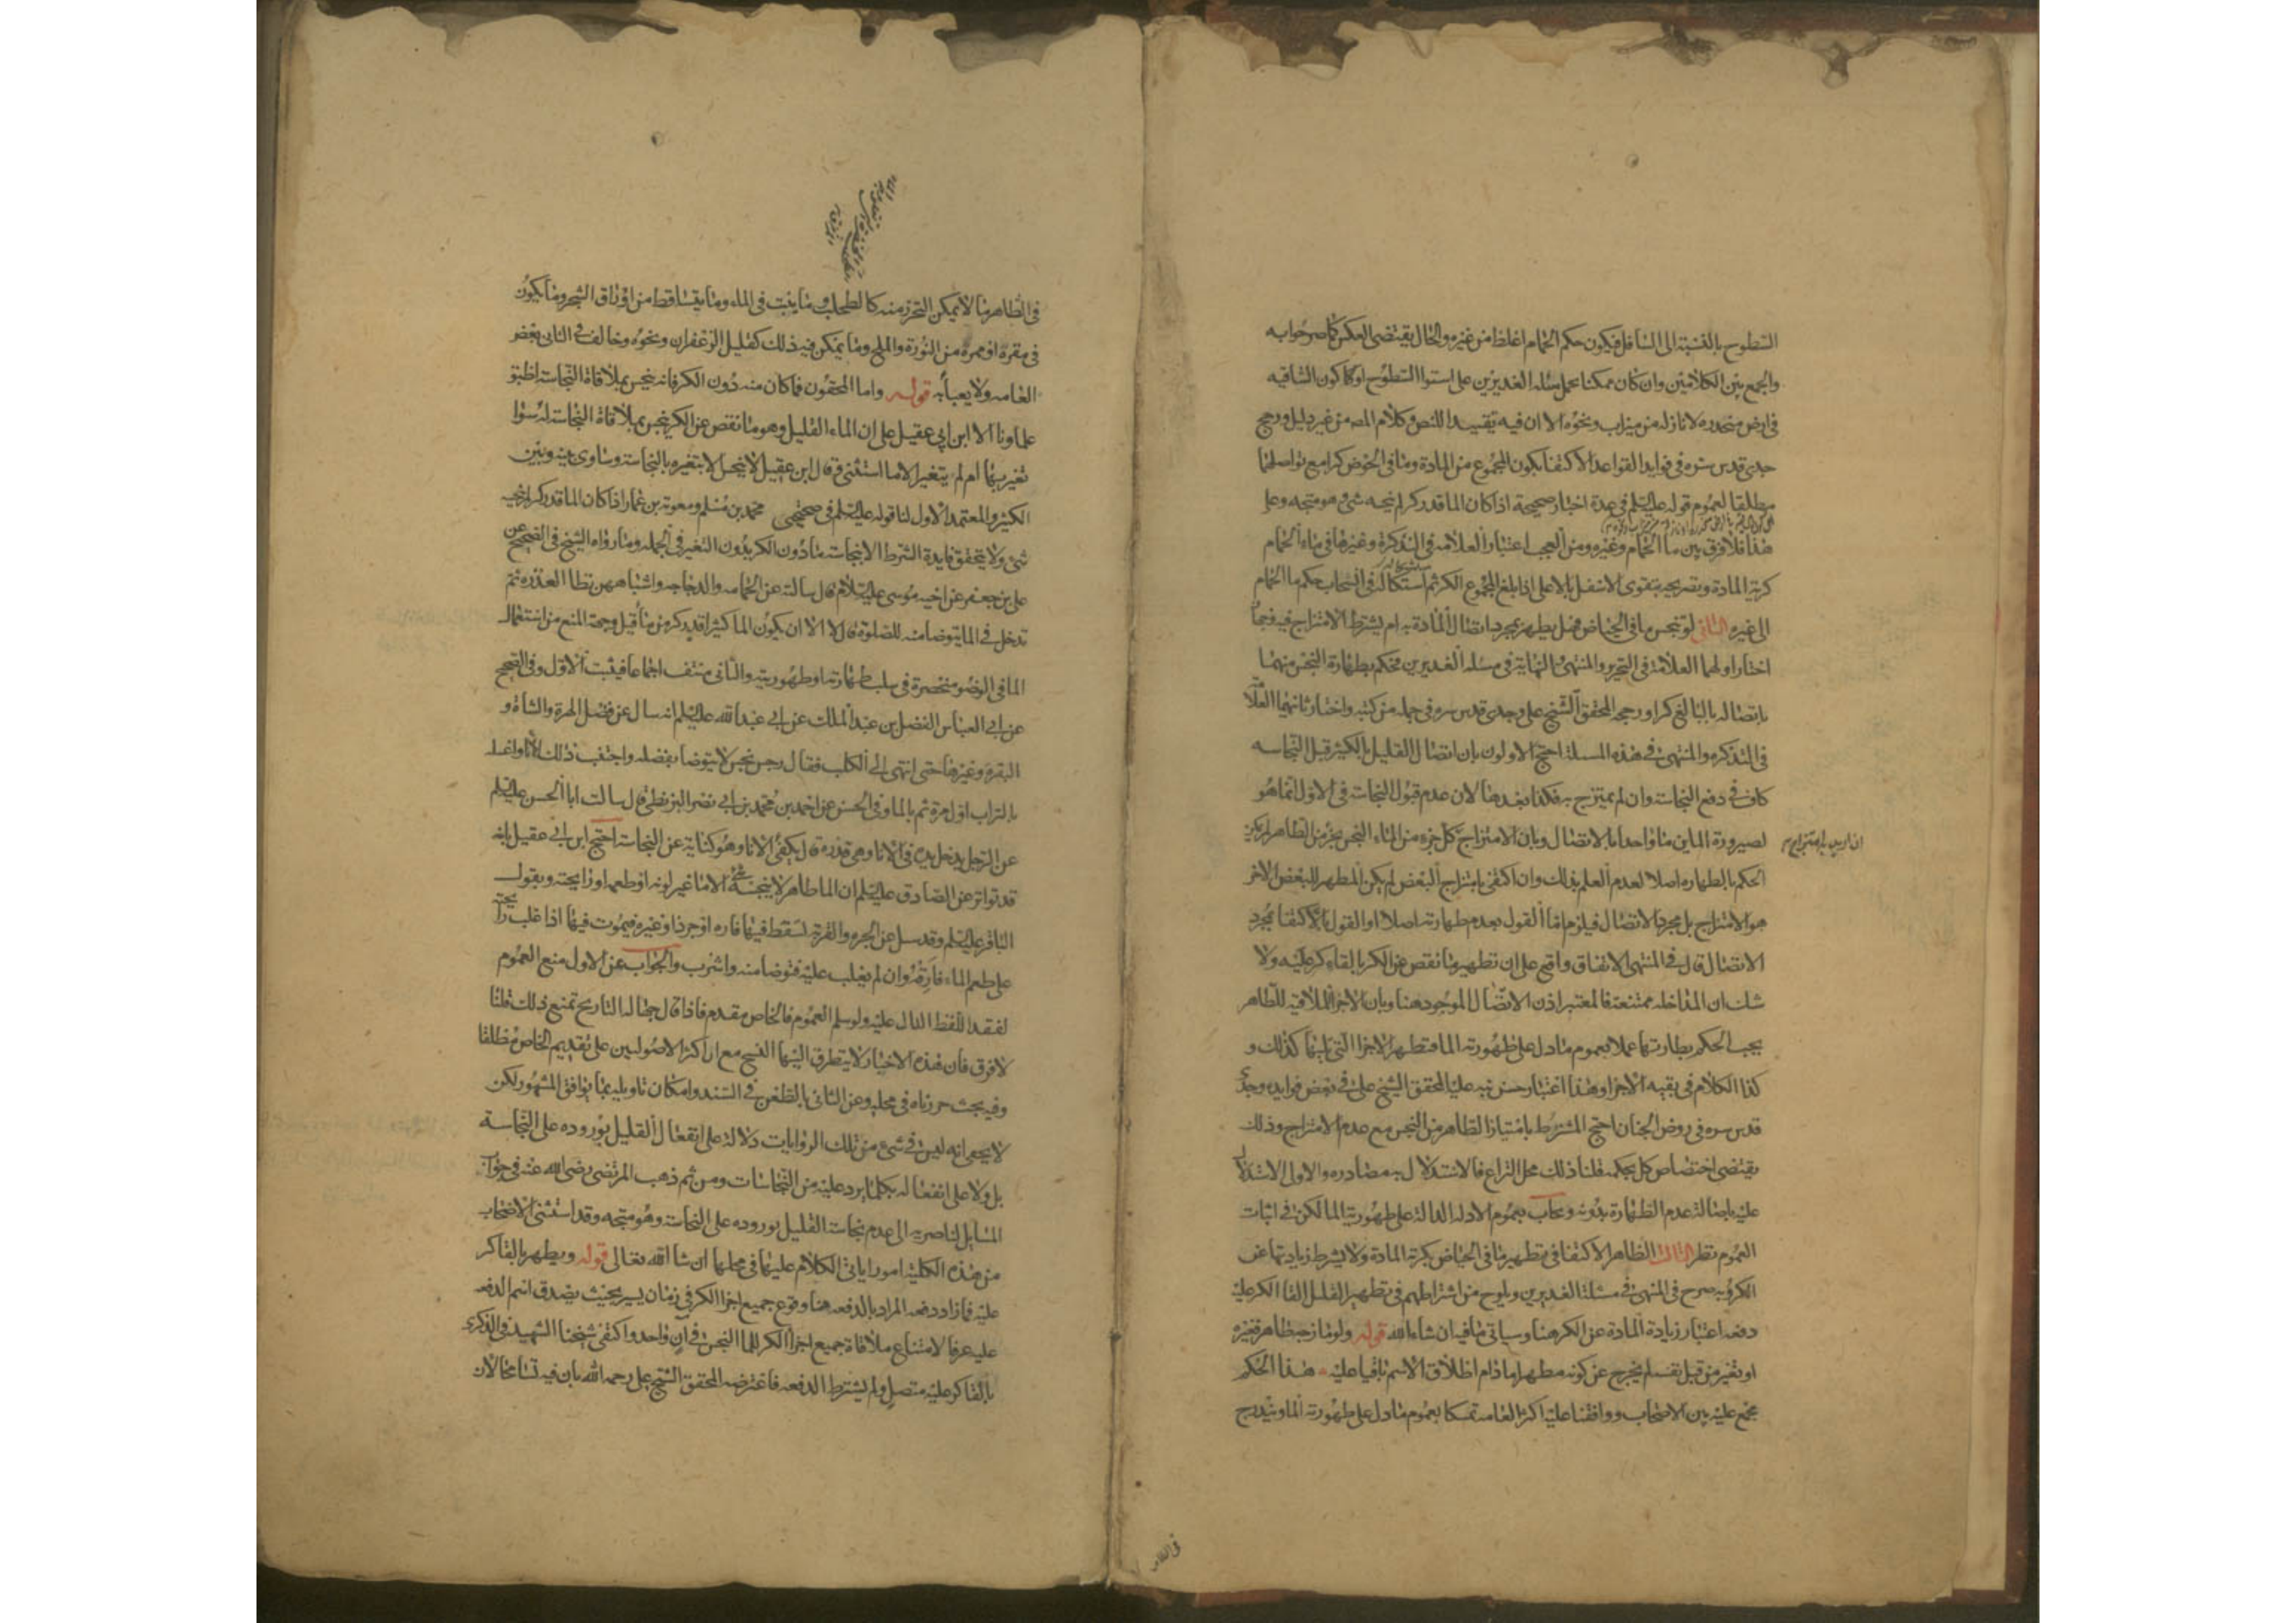 السطوح بالنسبة الى السافل فيكون حكم الحمام اغلظ من غيره والحال يقتضى العكس كما صرحوا به
والجمع بين الكلامين وان كان ممكنا بحمل مسئله الغديرين على استوا السطوح او كون الساقيه
فى ارض منحدره لا نازله من ميزاب ونحوه الا ان فيه تقييدا للنص وكلام المص من غير دليل ورجح
جدى قدس سره فى فوايد القواعد الاكتفا بكون المجموع من المادة وما فى الحوض كرا مع تواصلهما
مطلقا لعموم قوله علیه السلم فى عدة اخبار صحيحة اذا كان الما قدر كر لم ينجسه شئ وهو متجه وعلى
هذا فلا فرق بين ما الحمام وغيره ومن العجب اعتبار العلامه فى التذكرة وغيرها فى ماء الحمام
كرية المادة وتصريحه بتقوى الاسفل بالاعلى اذا بلغ المجموع الكر ثم استشكاله فى انسحاب حكم ما الحمام
الى غيره الثانى لو تنجس ما فى الحياض فهل يطهر بمجرد اتصال المادة به ام يشترط الامتزاج فيه وجهان
اختار اولهما العلامة فى التحرير والمنتهى والنهاية فى مسئله الغديرين فحكم بطهارة النجس منهما
باتصاله بالبالغ كرا ورجحه المحقق الشيخ على وجدى قدس سره فى جمله من كتبه واختار ثانيهما العلامة
فى التذكره والمنتهى فى هذه المسئلة احتج الاولون بان اتصال القليل بالكثير قبل النجاسه
كاف فى دفع النجاسة وان لم يمتزج به فكذا بعدها لان عدم قبول النجاسة فى الاول انما هو
لصيرورة الماين ماء واحدا بالاتصال وبان الامتزاج كل جزء من الماء النجس بجزء من الطاهر لم يكن
ان اريد به امتزاج م
الحكم بالطهاره اصلا لعدم العلم بذلك وان اكتفى بامتزاج البعض لم يكن المطهر للبعض الاخر
هو الامتزاج بل مجرد الاتصال فيلزم اما القول بعدم طهارته اصلا او القول بالاكتفا بمجرد
الاتصال قال فى المنتهى الاتفاق واقع على ان تطهير ما نقص عن الكر بالقاء كر عليه ولا
شك ان المداخله ممتنعة فالمعتبر اذن الاتصال الموجود هنا وبان الاجزا الملاقيه للطاهر
يجب الحكم بطهارتها عملا بعموم ما دل على طهوريه الما فتطهر الاجزا التى يليها كذلك و
كذا الكلام فى بقيه الاجزا وهذا اعتبار حسن نبه عليه المحقق الشيخ على فى بعض فوايده وجدى
قدس سره فى روض الجنان احتج المشترط بامتياز الطاهر من النجس مع عدم الامتزاج وذلك
يقتضى اختصاص كل بحكمه قلنا ذلك محل النزاع فالاستدلال به مصادره والاولى الاستدلال
عليه باصالة عدم الطهارة بدونه ويجاب بعموم الادله الدالة على طهورية الما لكن فى اثبات
العموم نظر الثالث الظاهر الاكتفا فى تطهير ما فى الحياض بكرية المادة ولا يشترط زيادتها عن
الكر وبه صرح فى المنتهى فى مسئلة الغديرين ويلوح من اشتراطهم فى تطهير القليل القا الكر عليه
دفعه اعتبار زيادة المادة عن الكر هنا وسياتى ما فيه ان شاء الله قوله ولو مازجه طاهر فغيره
او تغير من قبل نفسه لم يخرج عن كونه مطهرا ما دام اطلاق الاسم باقيا عليه هذا الحكم
مجمع عليه بين الاصحاب ووافقنا عليه اكثر العامه تمسكا بعموم ما دل على طهورية الما ويندرج
فى الظاهر
فى الظاهر ما لا يمكن التحرز منه كالطحلب وما ينبت فى الماء وما يتساقط من اوراق الشجر وما يكون
فى مقره او ممره من النورة والملح وما يمكن فيه ذلك كقليل الزعفران ونحوه وخالف فى الثانى بعض
العامه ولا يعبأ به قوله واما المحقون فما كان منه دون الكر فانه ينجس بملاقاة النجاسة اطبق
علماونا الا ابن ابى عقيل على ان الماء القليل وهو ما نقص عن الكر ينجس بملاقاة النجاسة له سوا
تغير بها ام لم يتغير الا ما استثنى وقال ابن عقيل لا ينجس الا بتغيره بالنجاسة وساوى بينه وبين
الكثير والمعتمد الاول لنا قوله علیه السلم فى صحيحى محمد بن مسلم ومعوية بن عمار اذا كان الما قدر كر لم ينجسه
شئ ولا يتحقق فايدة الشرط الا بنجاسة ما دون الكر بدون التغير فى الجمله وما رواه الشيخ فى الصحيح عن
على بن جعفر عن اخيه موسى علیه السلام قال سالته عن الحمامه والدجاجه واشباههن تطا العذره ثم
تدخل فى الما يتوضا منه للصلوة قال لا الا ان يكون الما كثيرا قدر كر من ماء قيل وجهة المنع من استعمال
الما فى الوضو منحصرة فى سلب طهارته او طهوريته والثانى منتف اجماعا فيثبت الاول وفى الصحيح
عن ابى العباس الفضل بن عبد الملك عن ابى عبد الله علیه السلم انه سال عن فضل الهرة والشاة و
البقرة وغيرها حتى انتهى الى الكلب فقال رجس نجس لا يتوضا بفضله واجتنب ذلك الما واغسله
بالتراب اول مرة ثم بالما وفى الحسن عن احمد بن محمد بن ابى نصر البزنطى قال سالت ابا الحسن علیه السلم
عن الرجل يدخل يده فى الانا وهى قذره قال يكفئ الانا وهو كناية عن النجاسة احتج ابن ابى عقيل بانه
قد تواتر عن الصادق علیه السلم ان الما طاهر لا ينجسه شئ الا ما غير لونه او طعمه او رايحته وبقول
الباقر علیه السلم وقد سل عن الجره والقربة تسقط فيها فاره او جرذ او غيره فيموت فيها اذا غلب رايحته
على طعم الماء فارقه وان لم يغلب عليه فتوضا منه واشرب والجواب عن الاول منع العموم
لفقد اللفظ الدال عليه ولو سلم العموم فالخاص مقدم فاذا قال جهالة التاريخ تمنع ذلك قلنا
لا فرق فان هذه الاخبار لا يتطرق اليها النسخ مع ان اكثر الاصوليين على تقديم الخاص مطلقا
وفيه بحث حررناه فى محله وعن الثانى بالطعن فى السند وامكان تاويله بما يوافق المشهور لكن
لا يخفى انه ليس فى شئ من تلك الروايات دلالة على انفعال القليل بوروده على النجاسة
بل ولا على انفعاله بكلما يرد عليه من النجاسات ومن ثم ذهب المرتضى رضى الله عنه فى جواب
المسايل الناصريه الى عدم نجاسة القليل بوروده على النجاسة وهو متجه وقد استثنى الاصحاب
من هذه الكلية امورا ياتى الكلام عليها فى محلها ان شا الله تعالى قوله ويطهر بالقا كر
عليه فما زاد دفعه المراد بالدفعه هنا وقوع جميع اجزا الكر فى زمان يسير بحيث يصدق اسم الدفعه
عليه عرفا لامتناع ملاقاة جميع اجزا الكر للما النجس فى آن واحد واكتفى شيخنا الشهيد فى الذكرى
بالقا كر عليه متصل ولم يشترط الدفعه فاعترضه المحقق الشيخ على رحمه الله بان فيه تسامحا لان